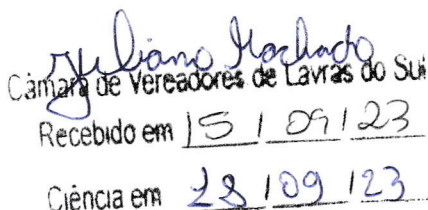 Juliano Machado
Câmara de Vereadores de Lavras do Sul
Recebido em 15 / 09 / 23
Ciência em 28 / 09 / 23